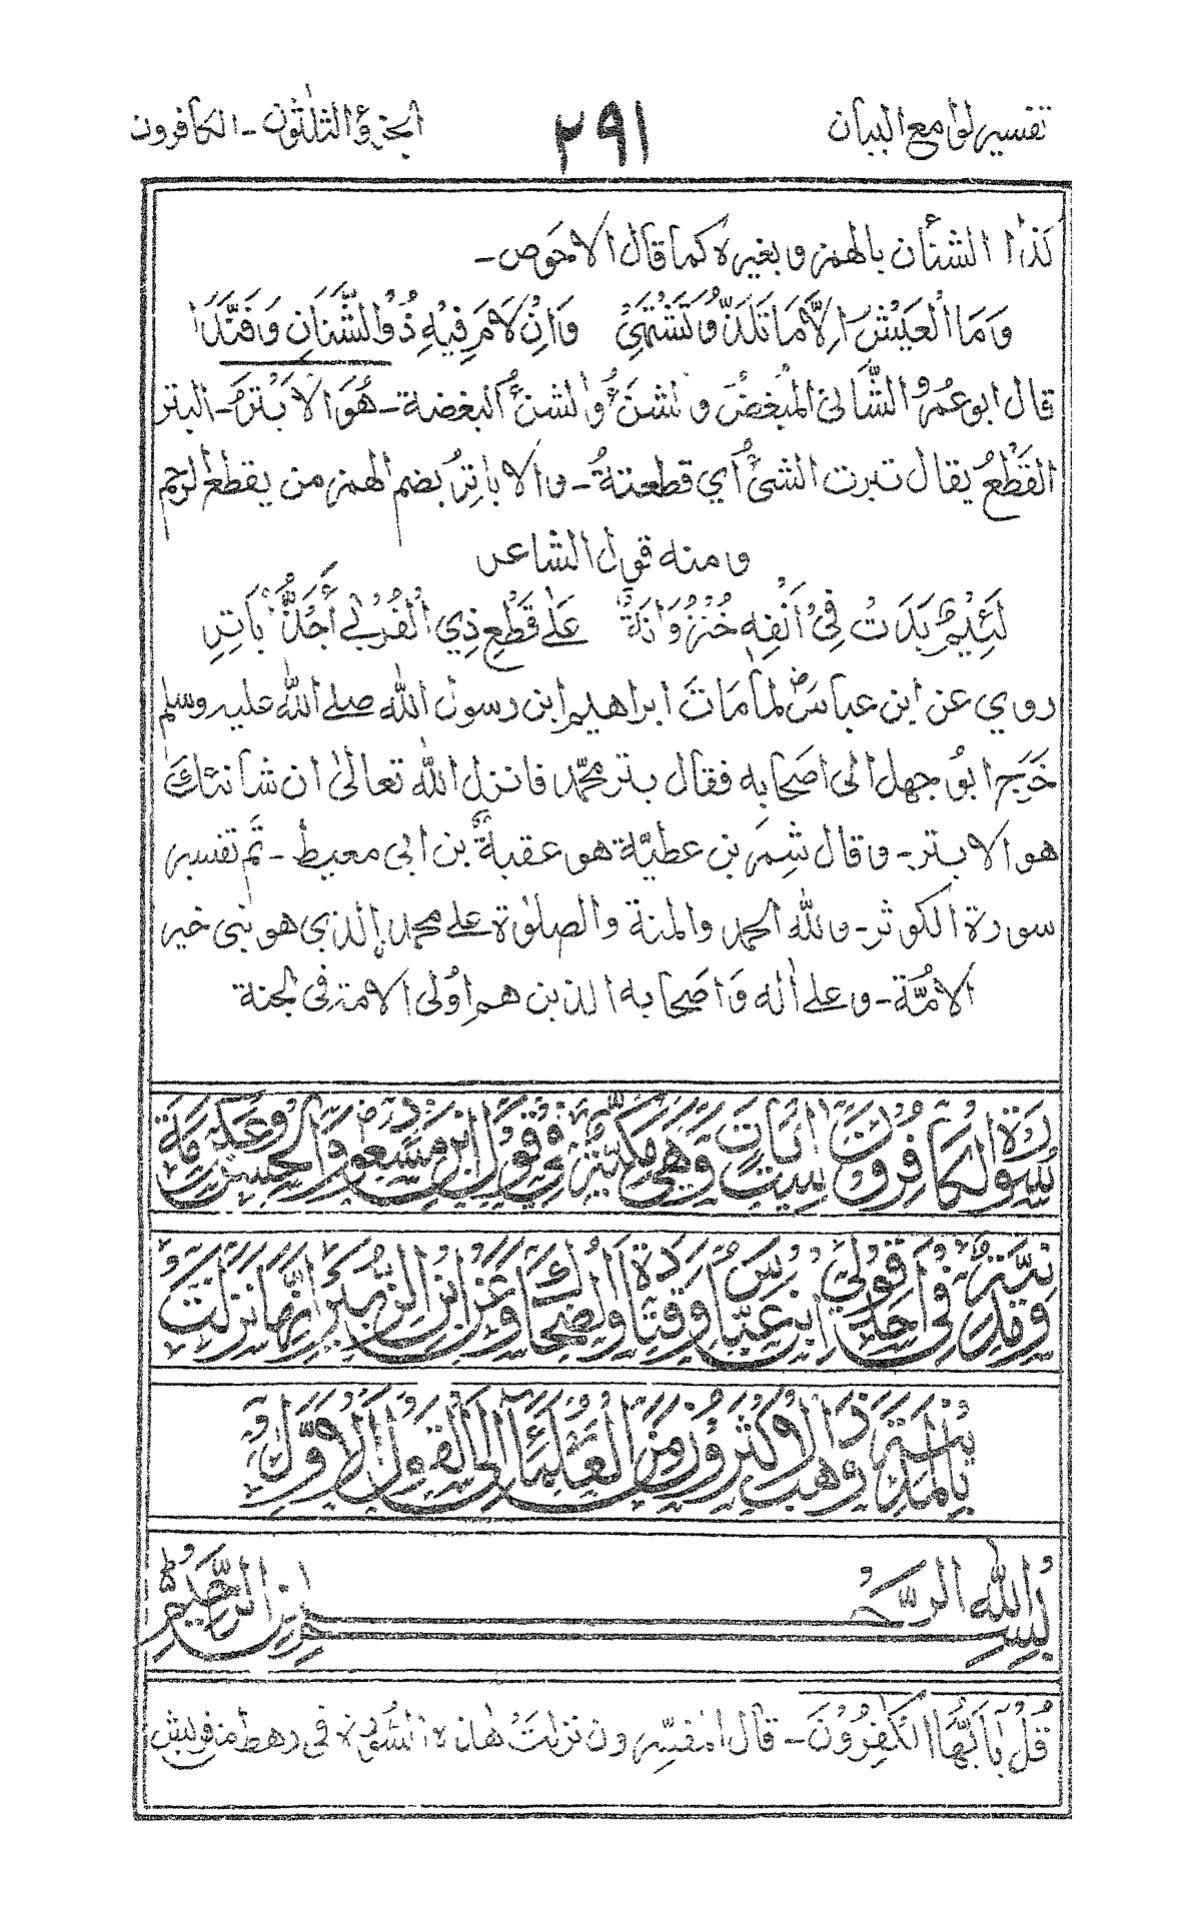 تفسير لوامع البيان
٢٩١
الجزء الثلثون - الكافرون
كذا الشنأن بالهمز وبغيره كما قال الاحوص -
وَمَا الْعَيْشُ اِلَّا مَا تَلَذُّ وَتَشْتَهِيْ وَاِنْ لَامَ فِيْهِ ذُوالشَّنَانِ وَفَنَّدَا
قال ابو عمرو الشَّانئ المُبغضُ والشنَأُ والشنئُ البغضة - هُوَ الْاَبْتَرُ - البتر
القَطْعُ يقال تبرت الشئَ أي قطعتهُ - والاباتِرُ بضم الهمز من يقطع الرحم
ومنه قول الشاعر
لَئِيْمٌ بَدَتْ فِيْ اَنْفِهِ خُنْزُوَانَةٌ عَلٰى قَطْعِ ذِي الْقُرْبٰى أَحَذُّ اُبَاتِرِ
روي عن ابن عباسؓ لما مَاتَ ابراهيم ابن رسول الله صلى الله عليه وسلم
خَرَج ابوُ جهل الى اصحابه فقال بتر محمّد فانزل الله تعالىٰ ان شانئك
هو الابتر - وقال شِمَر بن عطيّة هو عقبة بن ابي معيط - تَم تفسير
سورة الكوثر - ولله الحمد والمنة والصلوٰة على محمد الذي هو نبى خير
الامُّة - وعلى اٰله وَاصَحابه الذين هم اوُلى الامة فى الجنة
سُورَةُ الْكَافِرُونَ سِتُّ اٰيَاتٍ وَهِيَ مَكِّيَّةٌ فِي قَوْلِ ابْنِ مَسْعُودٍ وَالْحَسَنِ وَعِكْرِمَةَ
وَمَدَنِيَّةٌ فِي اَحَدِ قَوْلَيِ ابْنِ عَبَّاسٍ وَقَتَادَةَ وَالضَّحَّاكِ وَعَنِ ابْنِ الزُّبَيْرِ اَنَّهَا نَزَلَتْ
بِالْمَدِيْنَةِ وَذَهَبَ الْاَكْثَرُوْنَ مِنَ الْعُلَمَاءِ اِلَى الْقَوْلِ الْاَوَّلِ
بِسْمِ اللهِ الرَّحْمٰنِ الرَّحِيْمِ
قُلْ يٰاَيُّهَا الْكٰفِرُوْنَ - قال المفسّرون نزلتْ هٰذه السُّورة فى رهط من قريش